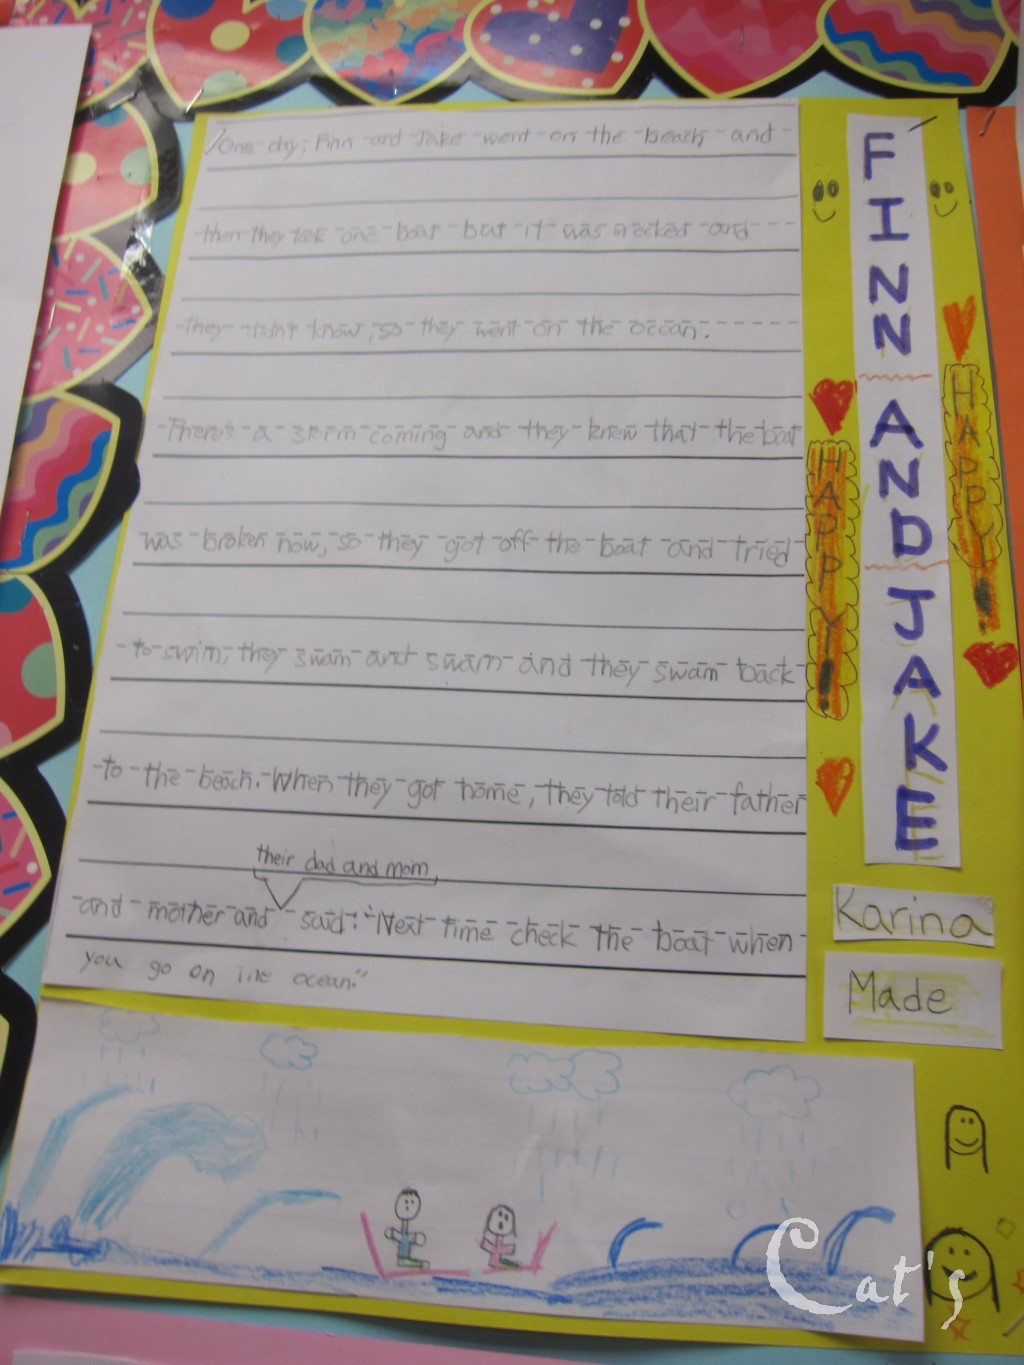 One day, Finn and Jake went on the beach, and
then they took one boat but it was wrecked and
they didn't know, so they went on the ocean.
There's a storm coming and they knew that the boat
was broken now, so they got off the boat and tried
to swim, they swam and swam and they swam back
to the beach. When they got home, they told their father
their dad and mom
and mother and said: "Next time check the boat when
you go on the ocean."
FINN AND JAKE
HAPPY!
HAPPY!
Karina
Made
Cat's